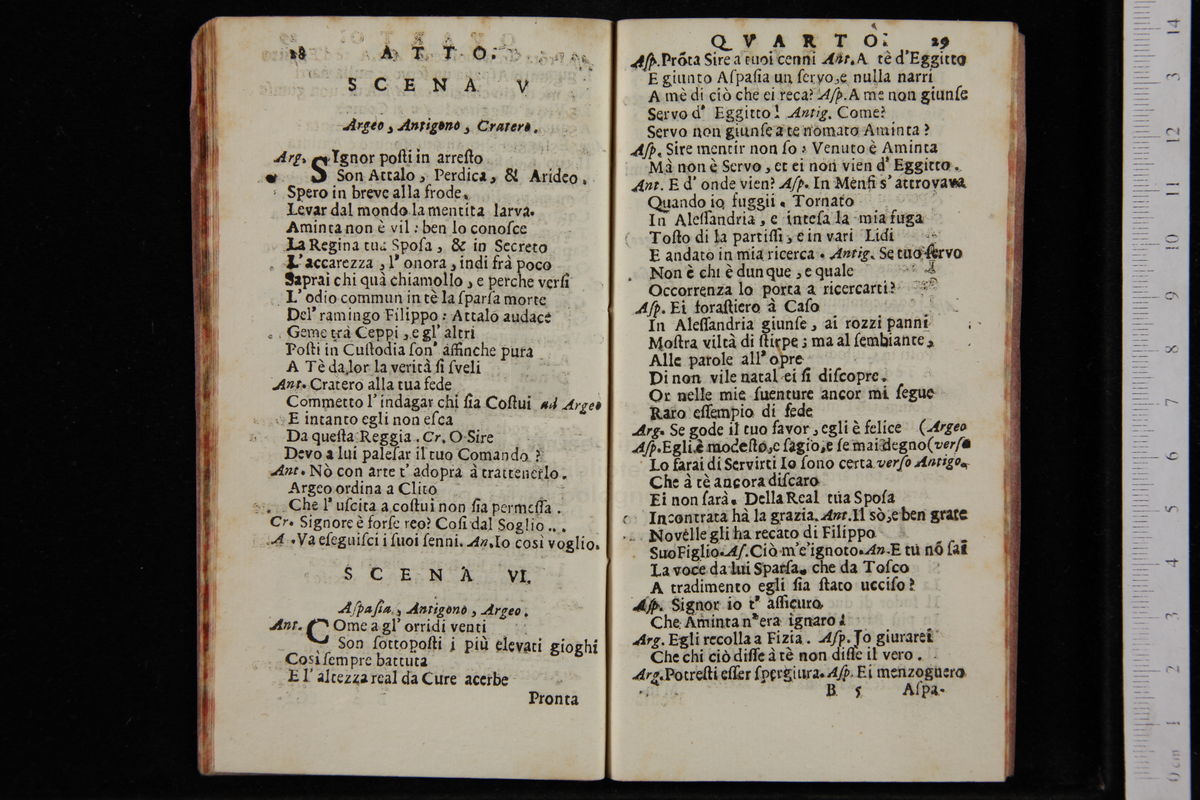 28 ATTO.
SCENA V
Argeo, Antigono, Cratero.
Arg. SIgnor posti in arresto
Son Attalo, Perdica, & Arideo.
Spero in breve alla frode.
Levar dal mondo la mentita larva.
Aminta non è vil: ben lo conosce
La Regina tua Sposa, & in Secreto
L'accarezza, l'onora, indi frà poco
Saprai chi quà chiamollo, e perche versi
L'odio commun in tè la sparsa morte
Del' ramingo Filippo: Attalo audace
Geme trà Ceppi, e gl' altri
Posti in Custodia son' affinche pura
A Tè da lor la verità si sveli
Ant. Cratero alla tua fede
Commetto l'indagar chi sia Costui ad Argeo
E intanto egli non esca
Da questa Reggia. Cr. O Sire
Devo a lui palesar il tuo Comando?
Ant. Nò con arte t' adopra à trattenerlo.
Argeo ordina a Clito
Che l' uscita a costui non sia permessa.
Cr. Signore è forse reo? Cosi dal Soglio...
A. Va eseguisci i suoi senni. An. Io così voglio.
SCENA VI.
Aspasia, Antigono, Argeo.
Ant. COme a gl' orridi venti
Son sottoposti i più elevati gioghi
Così sempre battuta
E l' altezza real da Cure acerbe
Pronta
QVARTO. 29
Asp. Prõta Sire a tuoi cenni Ant. A tè d'Eggitto
E giunto Aspasia un servo, e nulla narri
A mè di ciò che ei reca? Asp. A me non giunse
Servo d' Eggitto! Antig. Come?
Servo non giunse a te nomato Aminta?
Asp. Sire mentir non so; Venuto è Aminta
Mà non è Servo, et ei non vien d' Eggitto.
Ant. E d' onde vien? Asp. In Menfi s' attrovava
Quando io fuggii. Tornato
In Alessandria, e intesa la mia fuga
Tosto di la partissi, e in vari Lidi
E andato in mia ricerca. Antig. Se tuo servo
Non è chi è dunque, e quale
Occorrenza lo porta a ricercarti?
Asp. Ei forastiero à Caso
In Alessandria giunse, ai rozzi panni
Mostra viltà di stirpe; ma al sembiante,
Alle parole all' opre
Di non vile natal ei si discopre.
Or nelle mie suenture ancor mi segue
Raro essempio di fede
Arg. Se gode il tuo favor, egli è felice (Argeo
Asp. Egli è modesto, e sagio, e se mai degno (verso
Lo farai di Servirti Io sono certa verso Antigo.
Che à tè ancora discaro
Ei non sarà. Della Real tua Sposa
Incontrata hà la grazia. Ant. Il sò, e ben grate
Novelle gli ha recato di Filippo
Suo Figlio. As. Ciò m'e' ignoto. An. E tu nõ sai
La voce da lui Sparsa. che da Tosco
A tradimento egli sia stato ucciso?
Asp. Signor io t' assicuro.
Che Aminta n'era ignaro!
Arg. Egli recolla a Fizia. Asp. Jo giurarei
Che chi ciò disse à tè non disse il vero.
Arg. Potresti esser spergiura. Asp. Ei menzognero
B 5 Aspa-